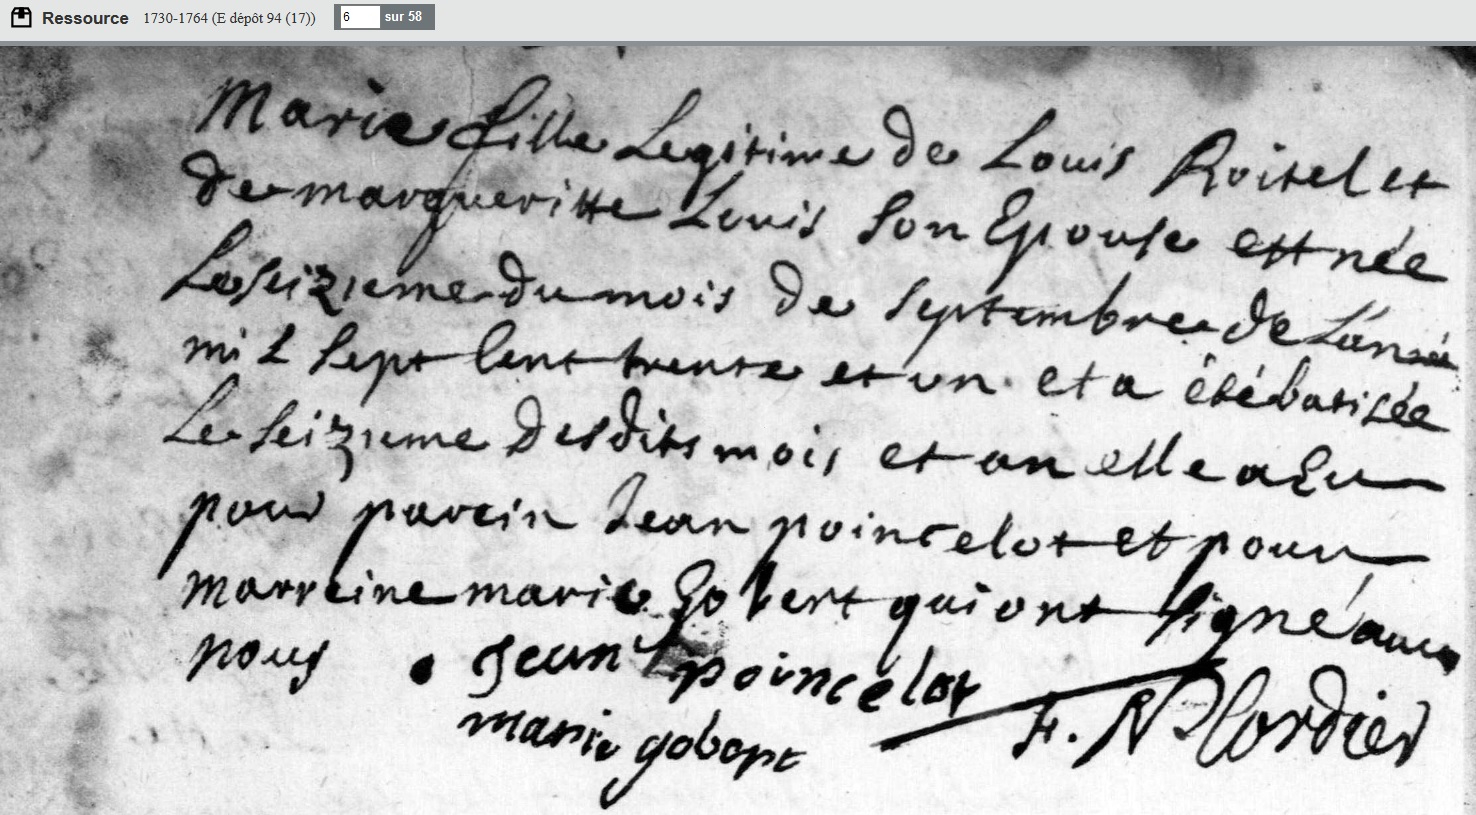 Ressource 1730-1764 (E dépôt 94 (17)) 6 sur 58
Marie fille Legitime de Louis Roitel et
de margueritte Louis son Epouse est née
Le seizieme du mois de septembre de L'année
mil sept cent trente et un et a été batisée
Le seizieme desdits mois et an elle a Eu
pour parein Jean poincelot et pour
marreine marie Gobert qui ont signé avec
nous Jean poincelot
marie gobert F. N Cordier